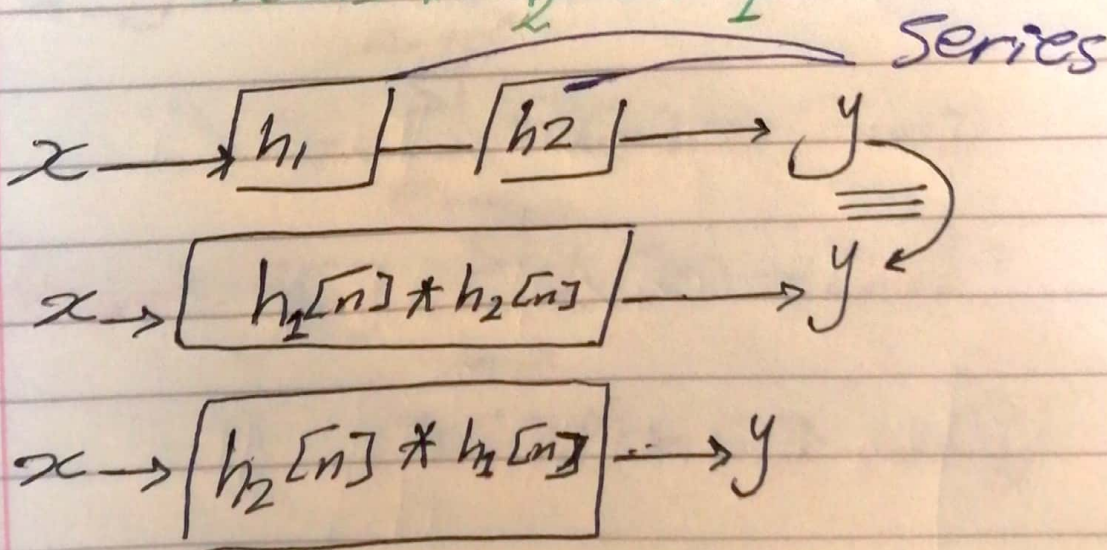 2 1
Series
x → h₁ — h2 → y
≡
x → h₁[n] * h₂[n] → y
x → h₂[n] * h₁[n] → y